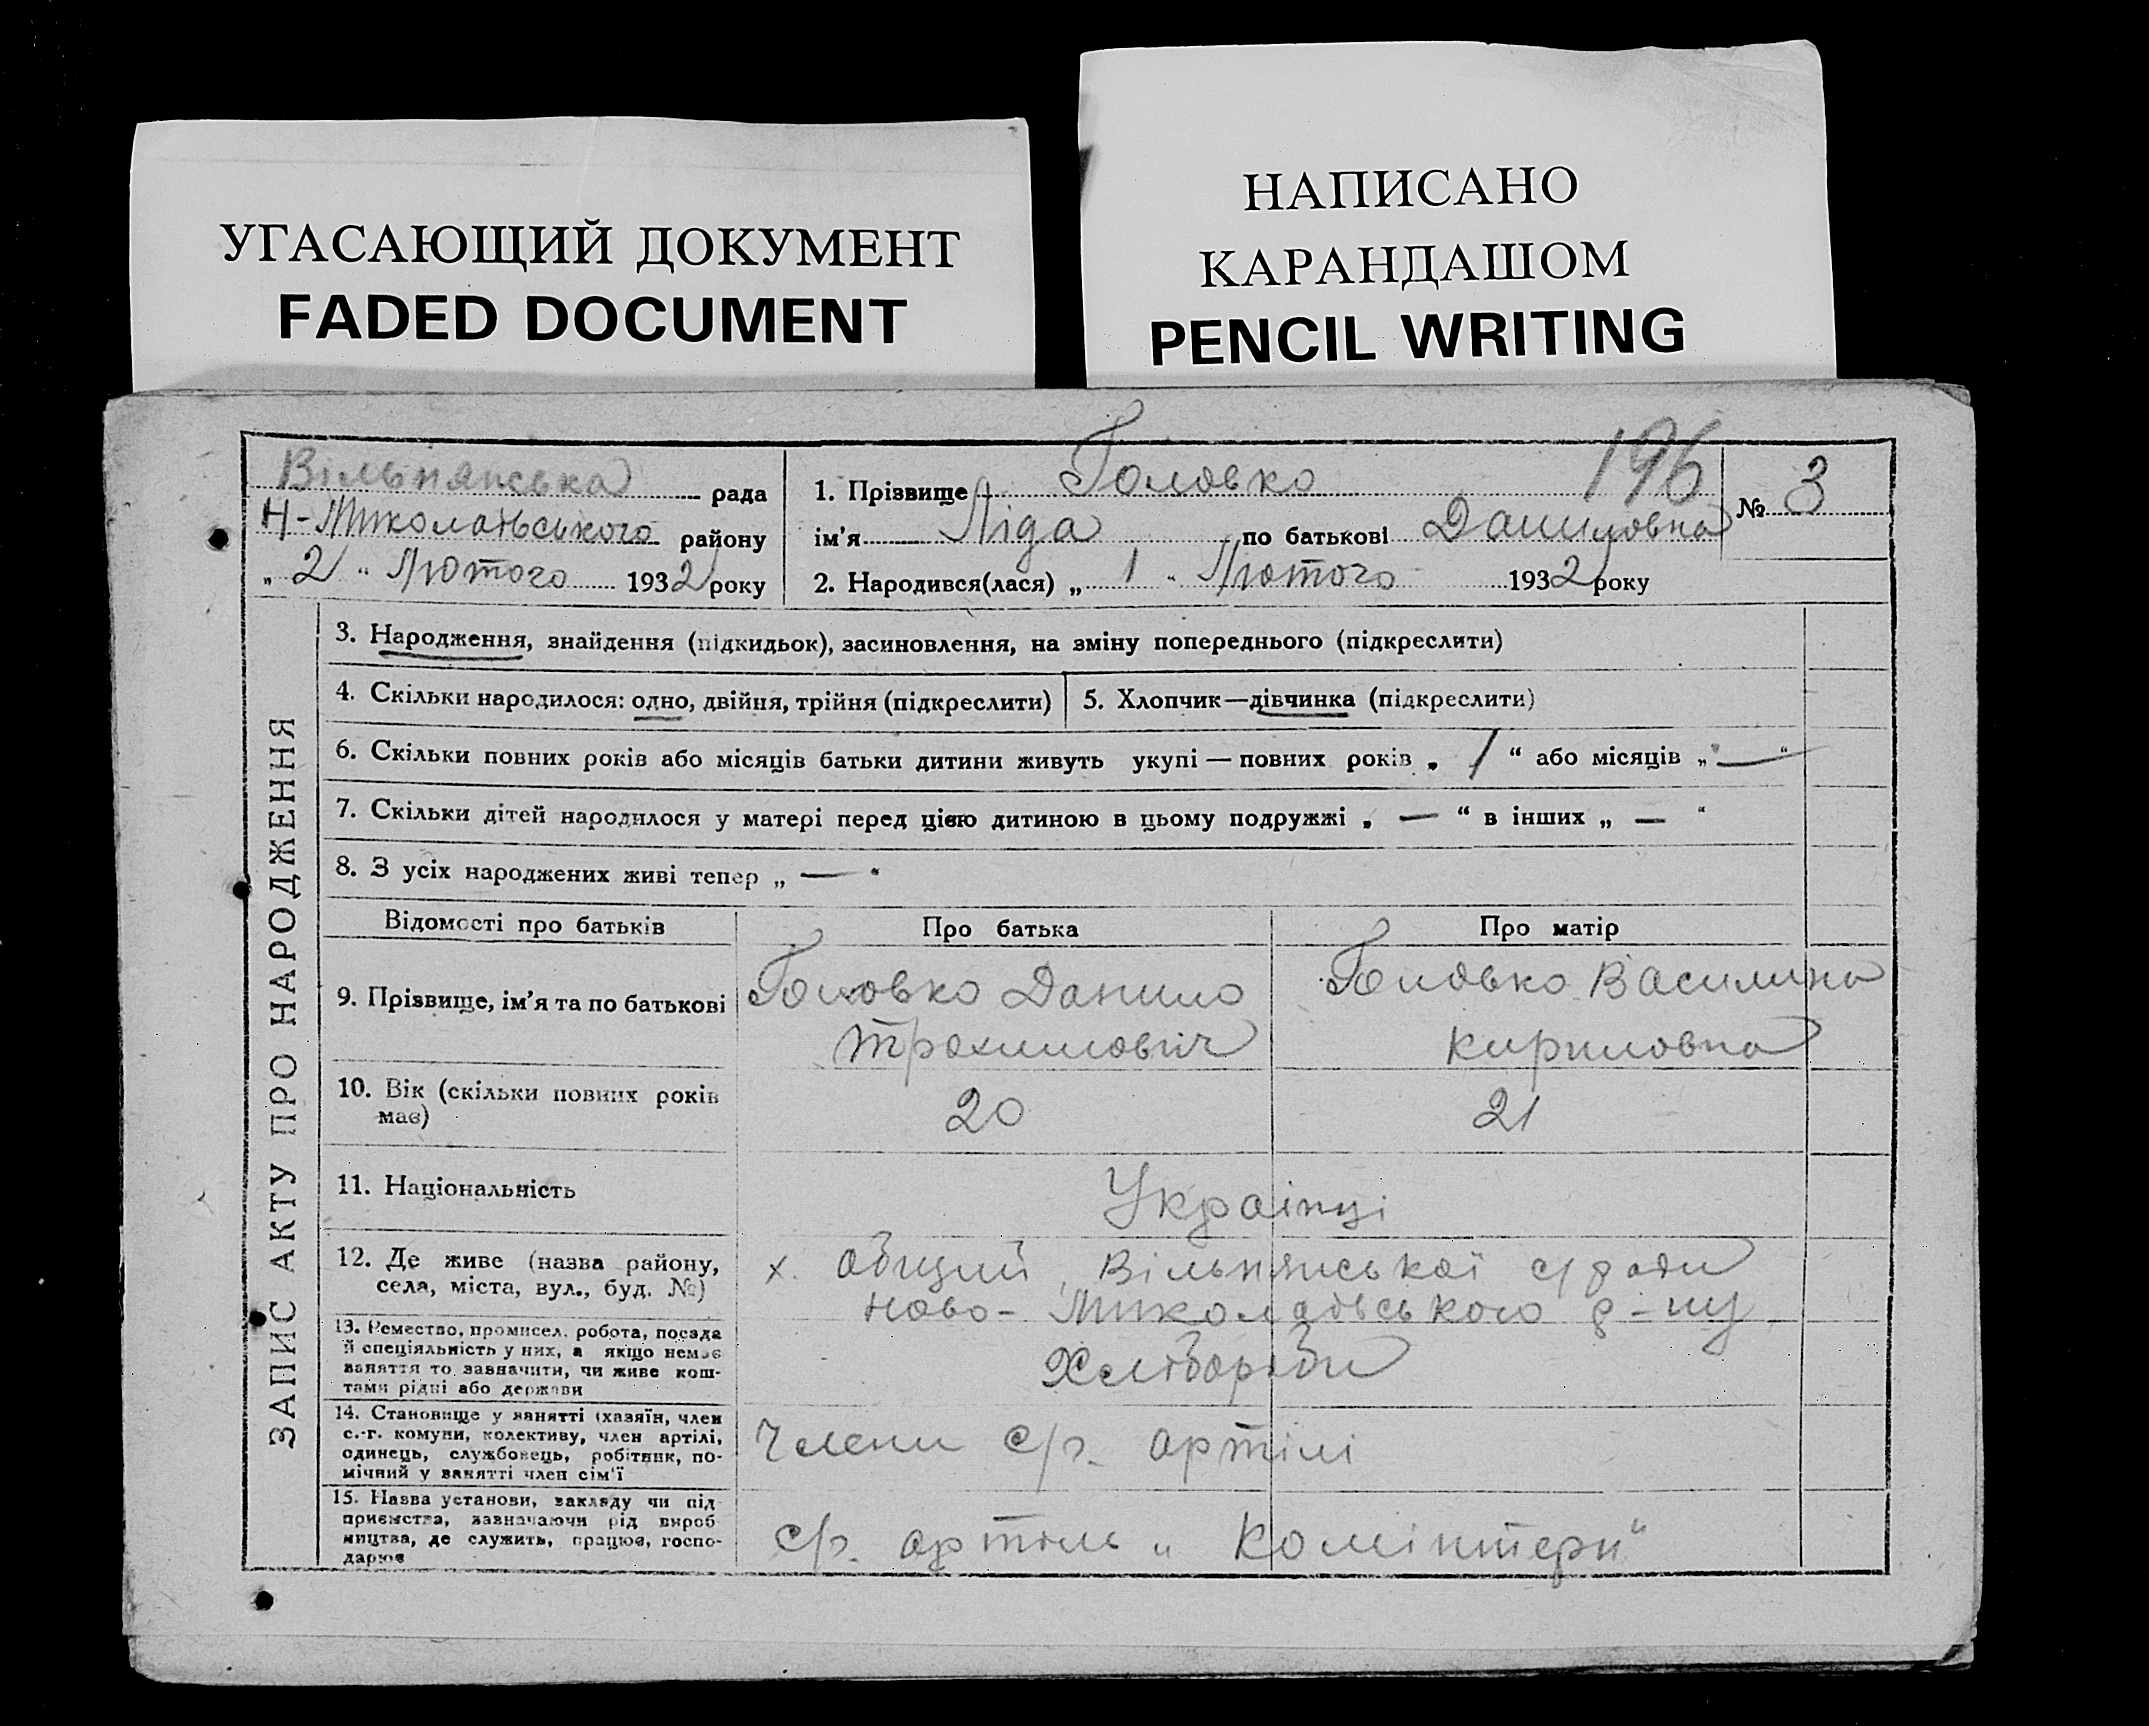 УГАСАЮЩИЙ ДОКУМЕНТ
FADED DOCUMENT
НАПИСАНО
КАРАНДАШОМ
PENCIL WRITING
196
Вільнянська рада
Н-Миколаївського району
„ 2 “ Лютого 1932 року
1. Прізвище Головко
ім'я Ліда по батькові Даниловна
2. Народився(лася) „ 1 “ Лютого 1932 року
№ 3
ЗАПИС АКТУ ПРО НАРОДЖЕННЯ
3. Народження, знайдення (підкидьок), засиновлення, на зміну попереднього (підкреслити)
4. Скільки народилося: одно, двійня, трійня (підкреслити)
5. Хлопчик—дівчинка (підкреслити)
6. Скільки повних років або місяців батьки дитини живуть укупі — повних років „ 1 “ або місяців „ — “
7. Скільки дітей народилося у матері перед цією дитиною в цьому подружжі „ — “ в інших „ — “
8. З усіх народжених живі тепер „ — “
Відомості про батьків Про батька Про матір
9. Прізвище, ім'я та по батькові
Головко Данило
Трохимович
Головко Василина
Кириловна
10. Вік (скільки повних років
має)
20 21
11. Національність
Українці
12. Де живе (назва району,
села, міста, вул., буд. №)
х. Общий, Вільнянської с/ради
Ново-Миколаївського р-ну
13. Ремество, промисел, робота, посада
й спеціяльність у них, а якщо немає
заняття то зазначити, чи живе кош-
тами рідні або держави
Хлібороби
14. Становище у занятті (хазяїн, член
с.-г. комуни, колективу, член артілі,
одинець, службовець, робітник, по-
мічний у занятті член сім'ї
Члени с/г. артілі
15. Назва установи, закладу чи під
приємства, зазначаючи рід вироб
ництва, де служить, працює, госпо-
дарює
с/г. артіль „Комінтерн“